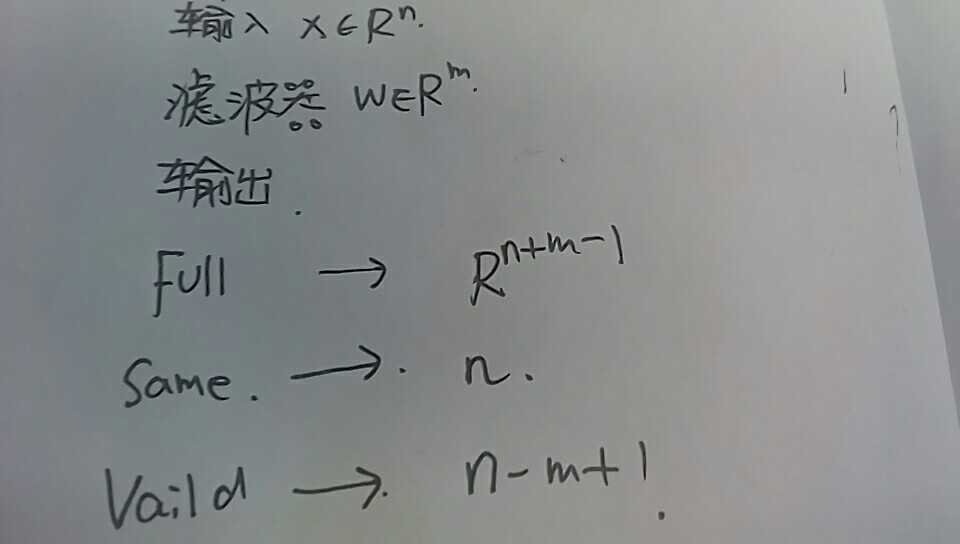 输入 X∈Rⁿ.
滤波器 W∈Rᵐ.
输出.
Full → Rⁿ⁺ᵐ⁻¹
Same. →. n.
Vaild → n-m+1.